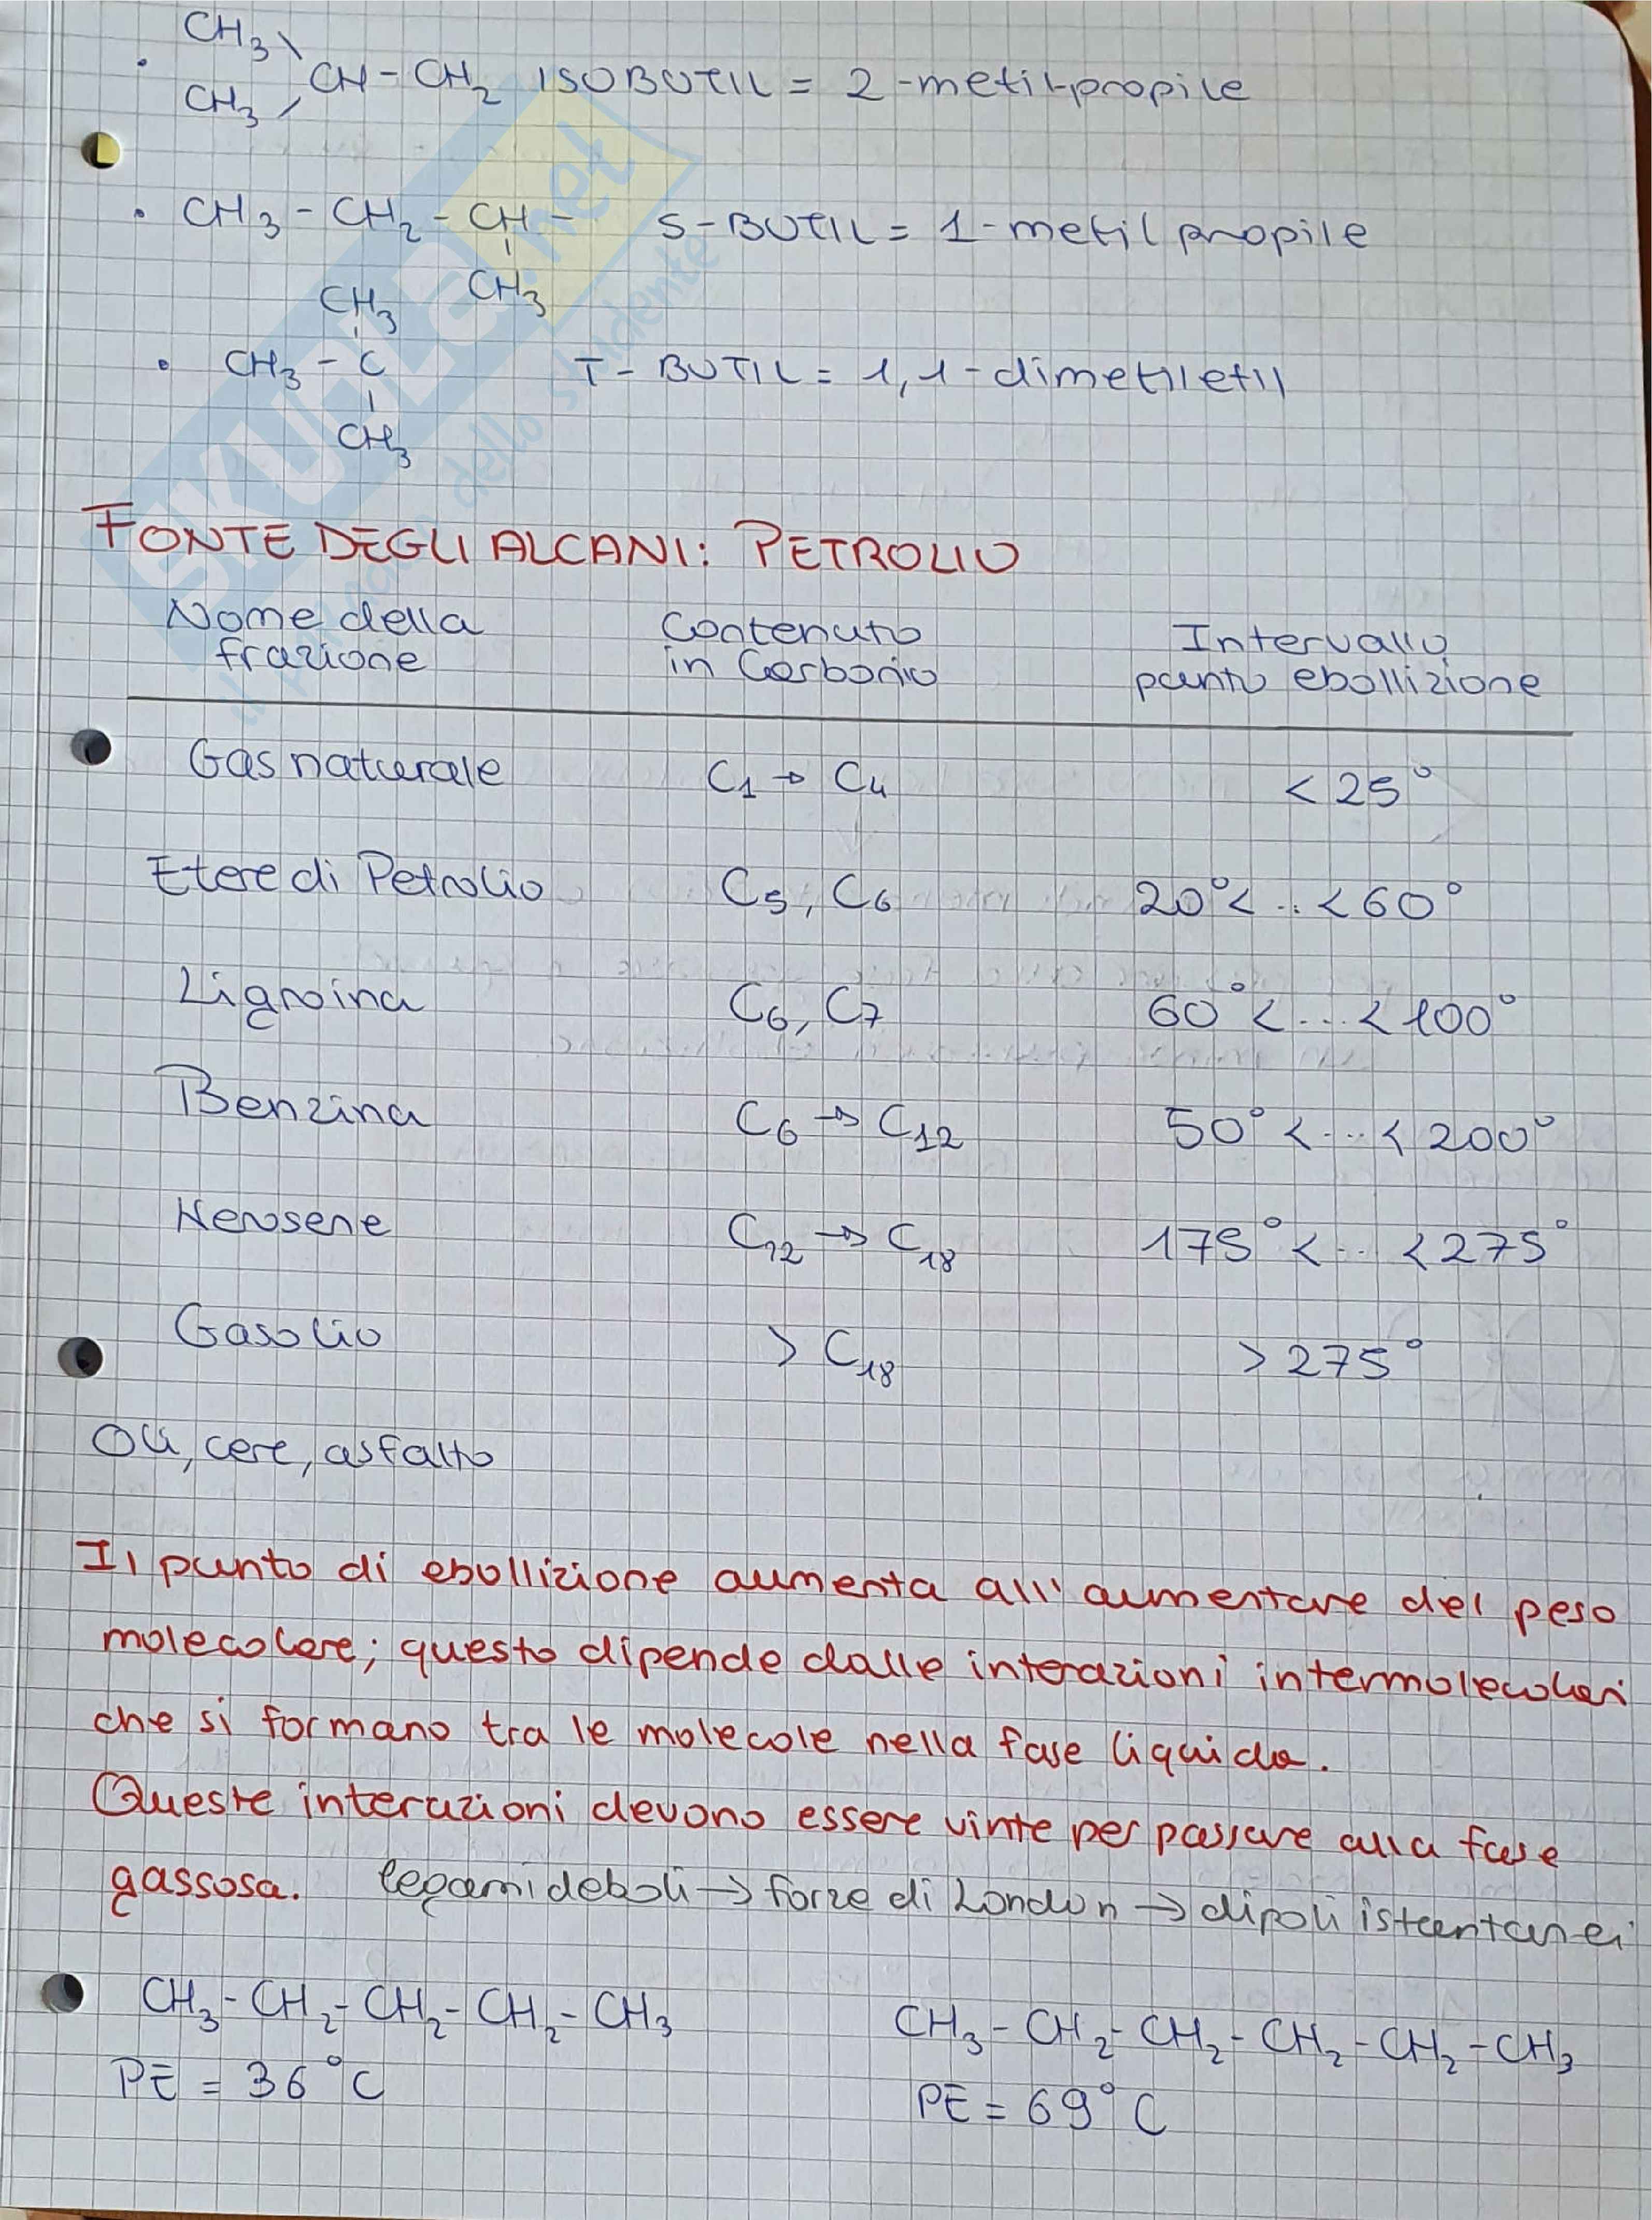 CH3
CH-CH2 ISOBUTIL = 2-metil-propile
CH3
CH3-CH2-CH- S-BUTIL = 1-metil propile
CH3
CH3
CH3-C T-BUTIL = 1,1-dimetiletil
CH3
FONTE DEGLI ALCANI: PETROLIO
Nome della frazione Contenuto in Carbonio Intervallo punto ebollizione
Gas naturale C1 → C4 < 25°
Etere di Petrolio C5, C6 20° < .. < 60°
Ligroina C6, C7 60° < ... < 100°
Benzina C6 → C12 50° < ... < 200°
Kerosene C12 → C18 175° < .. < 275°
Gasolio > C18 > 275°
Oli, cere, asfalto
Il punto di ebollizione aumenta all'aumentare del peso
molecolare; questo dipende dalle interazioni intermolecolari
che si formano tra le molecole nella fase liquida.
Queste interazioni devono essere vinte per passare alla fase
gassosa. legami deboli → forze di London → dipoli istantanei
CH3-CH2-CH2-CH2-CH3 CH3-CH2-CH2-CH2-CH2-CH3
PE = 36°C PE = 69°C
SKUOLA.net
il paradiso dello studente